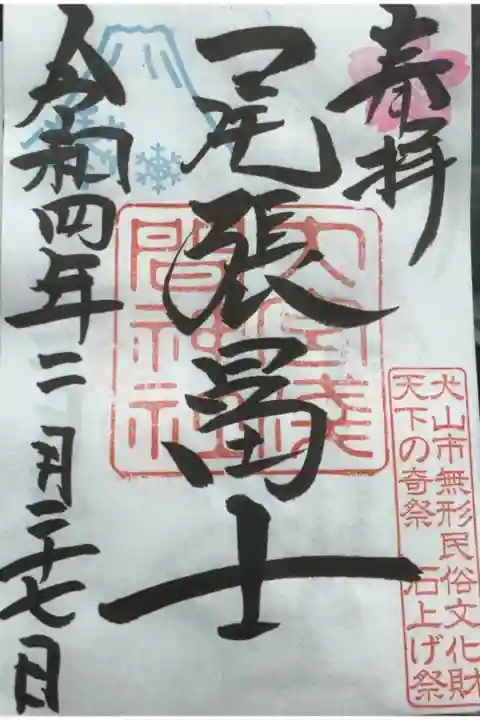 奉拝
尾張冨士
大宮浅
間神社
令和四年二月二十七日
犬山市無形民俗文化財
天下の奇祭 石上げ祭